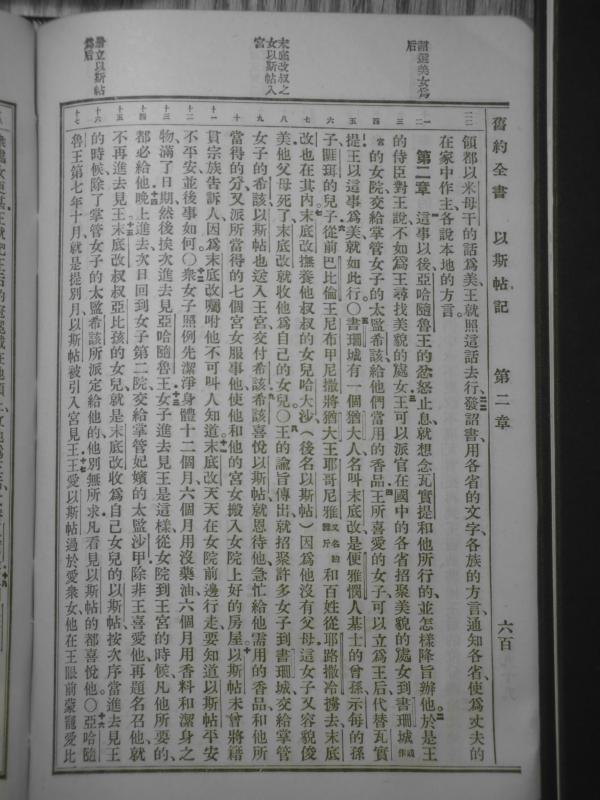 詔選美女爲
后
末底改叔之
女以斯帖入
宮
册立以斯帖
爲后
舊約全書　以斯帖記　第二章　六百
領都以米母干的話爲美王就照這話去行發詔書用各省的文字各族的方言通知各省使爲丈夫的
在家中作主各說本地的方言。
第二章　這事以後亞哈隨魯王的忿怒止息就想念瓦實提和他所行的並怎樣降旨辦他於是王
的侍臣對王說不如爲王尋找美貌的處女王可以派官在國中的各省招聚美貌的處女到書珊城或作宮
的女院交給掌管女子的太監希該給他們當用的香品王所喜愛的女子可以立爲王后代替瓦實
提王以這事爲美就如此行〇書珊城有一個猶大人名叫末底改是便雅憫人基士的曾孫示每的孫
子睚珥的兒子從前巴比倫王尼布甲尼撒將猶大王耶哥尼雅和百姓從耶路撒冷擄去末底
改也在其內末底改撫養他叔叔的女兒哈大沙（後名以斯帖）因爲他沒有父母這女子又容貌俊
美他父母死了末底改就收他爲自己的女兒〇王的諭旨傳出就招聚許多女子到書珊城交給掌管
女子的希該以斯帖也送入王宮交付希該希該喜悅以斯帖就恩待他急忙給他需用的香品和他所
當得的分又派所當得的七個宮女服事他使他和他的宮女搬入女院上好的房屋以斯帖未曾將籍
貫宗族告訴人因爲末底改囑咐他不可叫人知道末底改天天在女院前邊行走要知道以斯帖平安
不平安並後事如何〇衆女子照例先潔淨身體十二個月六個月用沒藥油六個月用香料和潔身之
物滿了日期然後挨次進去見亞哈隨魯王女子進去見王是這樣從女院到王宮的時候凡他所要的
都必給他晚上進去次日回到女子第二院交給掌管妃嬪的太監沙甲除非王喜愛他再題名召他就
不再進去見王末底改叔叔亞比孩的女兒就是末底改收爲自己女兒的以斯帖按次序當進去見王
的時候除了掌管女子的太監希該所派定給他的他別無所求凡看見以斯帖的都喜悅他〇亞哈隨
魯王第七年十月就是提別月以斯帖被引入宮見王王愛以斯帖過於愛衆女他在王眼前蒙寵愛比